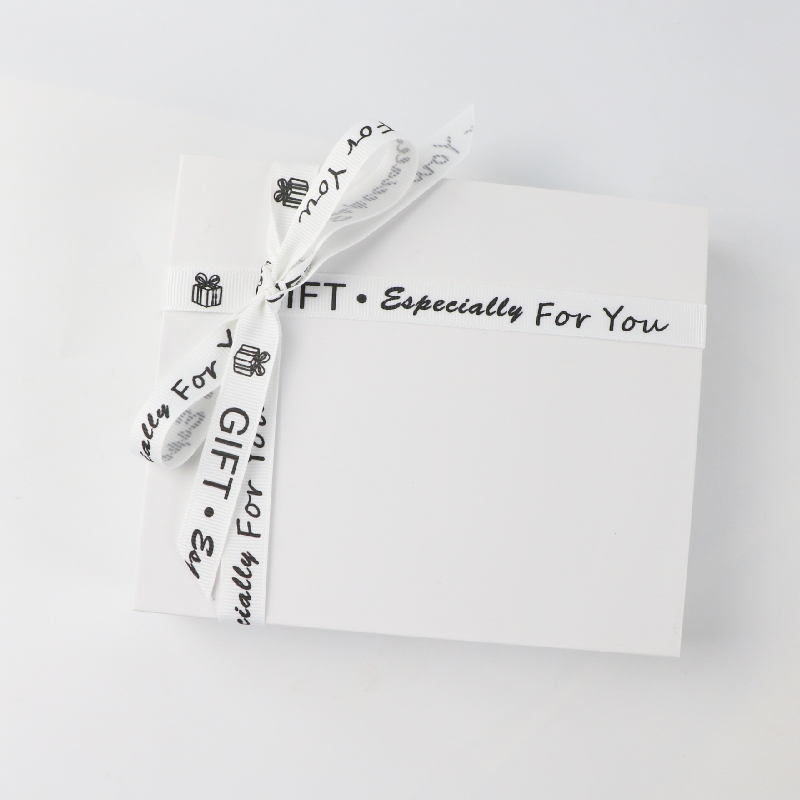 For You
You
GIFT • Especially For You
ially For Y
GIFT • Es
cially For You